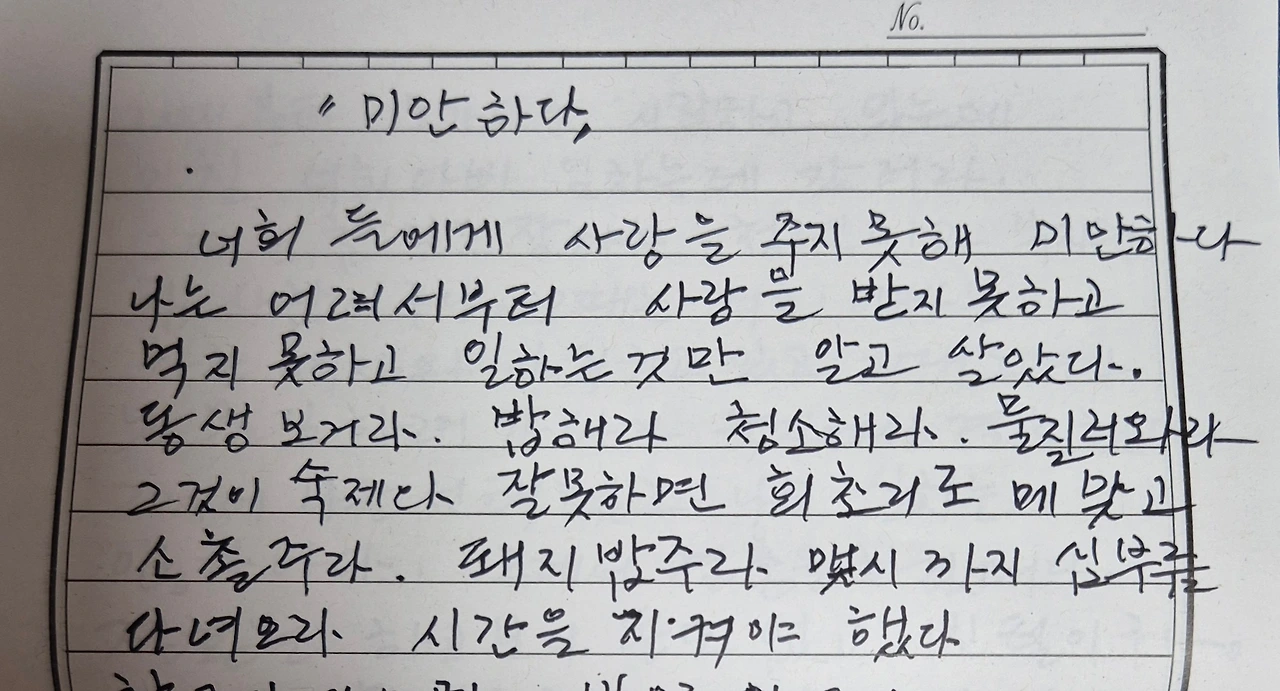 No.
"미안하다,,
너희들에게 사랑을 주지못해 미안하다
나는 어려서부터 사랑을 받지못하고
먹지못하고 일하는것만 알고 살았다.
동생보거라. 밥해라 청소해라. 물질러와라
그것이 숙제다 잘못하면 회초리로 메맞고
소촐주라. 돼지밥주라. 몇시까지 심부름
다녀오라. 시간을 지켜야 했다